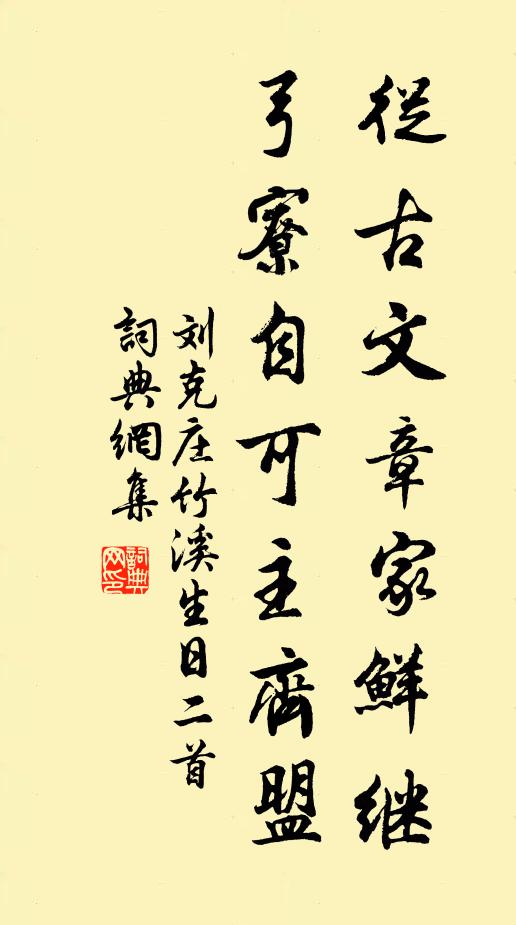 從古文章家鮮继
弓寮自可主齊盟
刘克庄竹溪生日二首
詞典網集
詞典
网印